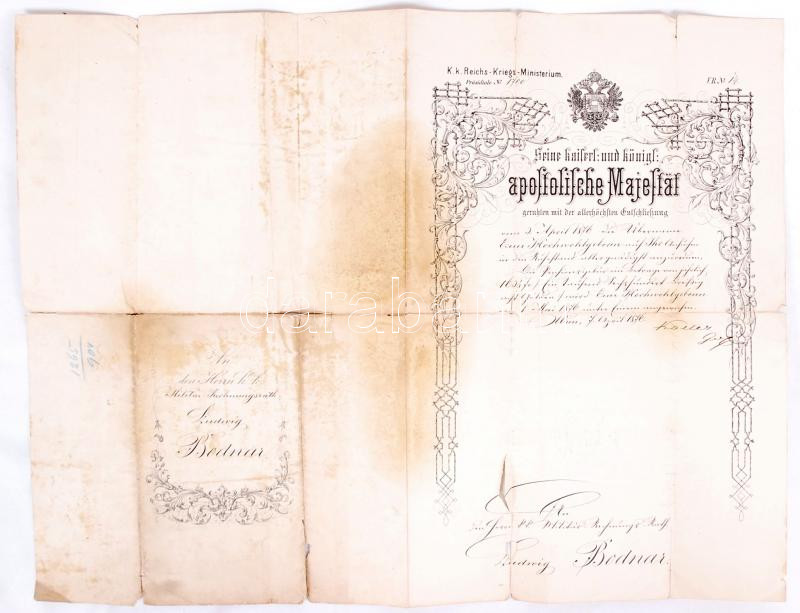 K. k. Reichs-Kriegs-Ministerium.
Präsidiale № 1700
V.R. № 14
Seine kaiserl: und königl:
apostolische Majestät
geruhten mit der allerhöchsten Entschließung
vom 3 April 1876 die Übernahme
Euer Hochwohlgeboren auf Ihr Ansuchen
in den Ruhestand allergnädigst anzuordnen.
Die
Ein tausend sechshundert
acht Gulden wird Euer Hochwohlgeboren
1. Mai 1876 unter Einem angewiesen.
Wien, 7. April 1876
An
den Herrn k. k. Militär Rechnungs Rath
Ludwig Bodnar.
1265
904
An
den Herrn k. k.
Militär Rechnungsrath
Ludwig
Bodnar
darabanth